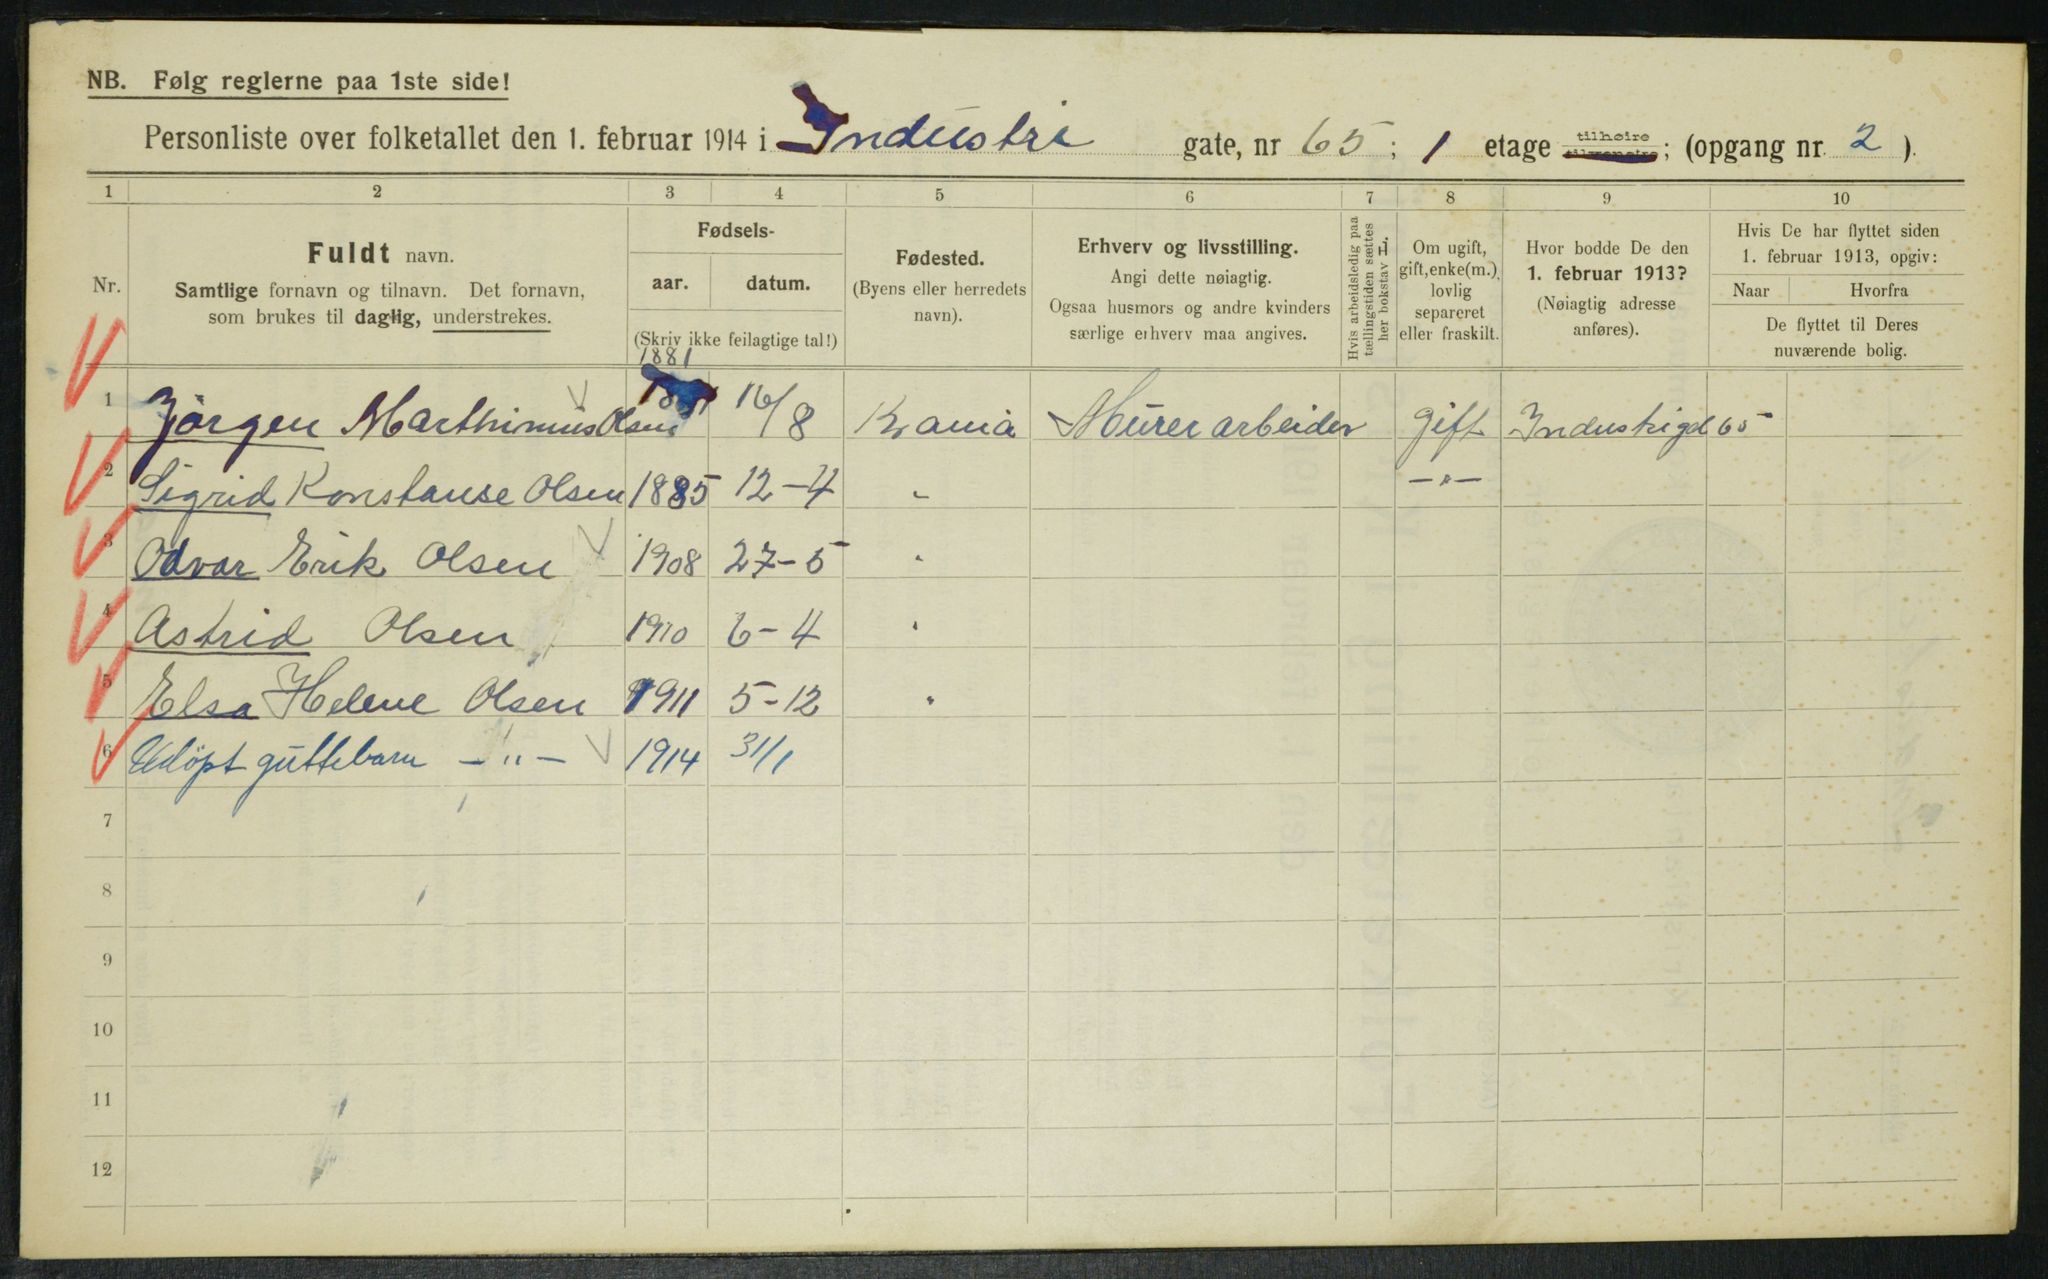 NB. Følg reglerne paa 1ste side!
Personliste over folketallet den 1. februar 1914 i Industri gate, nr 65; 1 etage tilhøire tilvenstre; (opgang nr. 2).
1 2 3 4 5 6 7 8 9 10
Nr.
Fuldt navn.
Samtlige fornavn og tilnavn. Det fornavn,
som brukes til daglig, understrekes.
Fødsels-
aar. datum.
(Skriv ikke feilagtige tal!)
Fødested.
(Byens eller herredets
navn).
Erhverv og livsstilling.
Angi dette nøiagtig.
Ogsaa husmors og andre kvinders
særlige erhverv maa angives.
Hvis arbeidsledig paa
tællingstiden sættes
her bokstav L.
Om ugift,
gift, enke(m.),
lovlig
separeret
eller fraskilt.
Hvor bodde De den
1. februar 1913?
(Nøiagtig adresse
anføres).
Hvis De har flyttet siden
1. februar 1913, opgiv:
Naar Hvorfra
De flyttet til Deres
nuværende bolig.
1881
1 Jörgen Marthinius Olsen 16/8 Krania Murerarbeider gift Industrigd 65
2 Sigrid Konstanse Olsen 1885 12-4 " -"-
3 Odvar Erik Olsen 1908 27-5 "
4 Astrid Olsen 1910 6-4 "
5 Elsa Helene Olsen 1911 5-12 "
6 Udöpt guttebarn -"- 1914 31/1
7
8
9
10
11
12